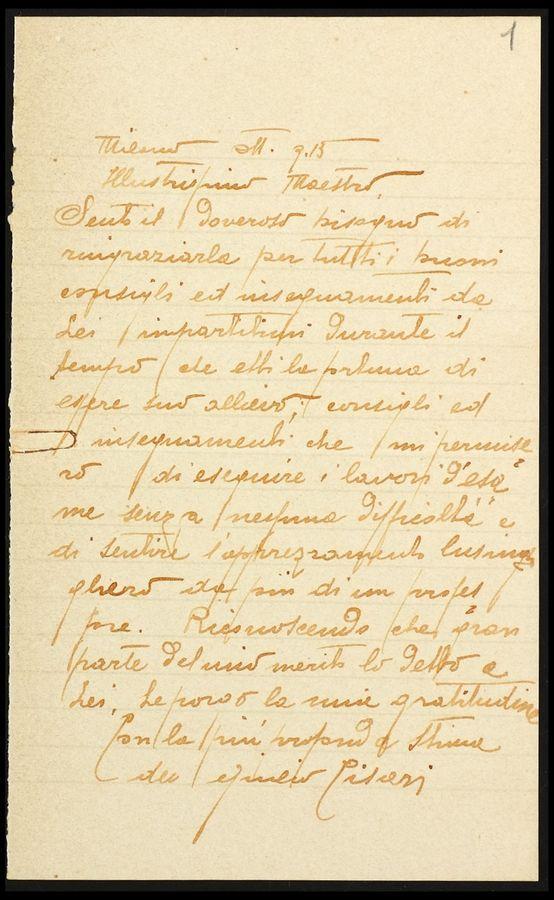 1
Milano 9.15
Illustrissimo Maestro,
Sento il doveroso bisogno di
ringraziarla per tutti i buoni
consigli ed insegnamenti da
Lei impartitimi durante il
tempo che ebbi la fortuna di
essere suo allievo; consigli ed
insegnamenti che mi permise
ro di eseguire i lavori d'esa=
me senza nessuna difficoltà e
di sentire l'apprezzamento lusin
ghiero da più di un profes
sore. Riconoscendo che gran
parte del mio merito lo debbo a
Lei, Le porgo la mia gratitudine
Con la più profonda stima